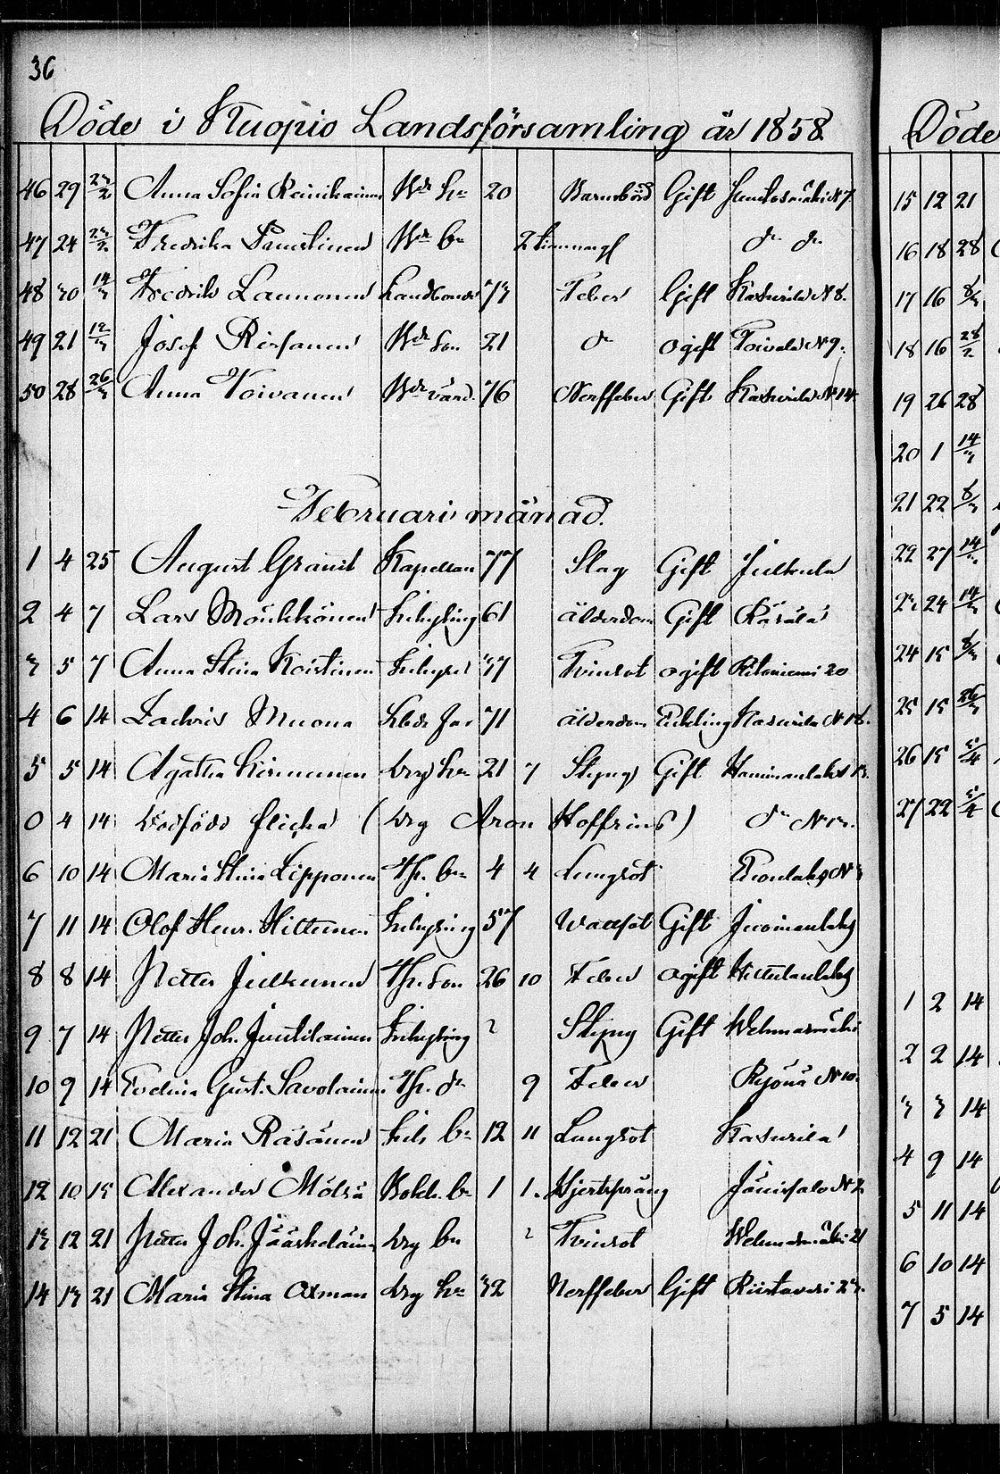 36
Döde i Kuopio Landsförsamling år 1858
46 29 23/2 Anna Sofia Reinikainen Bde hu 20 Barnsbörd Gift Huntosmäki N 7
47 24 23/2 Fredrika Paustinen Bde bn 2 timmar gl do do
48 30 14/3 Fredrik Launonen Landbonde 73 Feber Gift Kasurila N 8.
49 21 12/3 Josef Rissanen Bde Son 21 do ogift Toivala N 9.
50 28 26/3 Anna Toivanen Bde värd. 76 Nerffeber Gift Kasurila N 14
Februari månad.
1 4 25 August Granit Kapellan 77 Slag Gift Julkula
2 4 7 Lars Mönkkönen Inhysling 61 älderdom Gift Räsälä
3 5 7 Anna Stina Koistinen Inhyses 37 Tvinsot ogift Ritoniemi 20
4 6 14 Zachris Muona 71 älderdom Enkling Kasurila N 18.
5 5 14 Agatha Hirvonen drg hu 21 7 Styng Gift Haminanlaks 13.
0 4 14 Dödföds flicka (drg Aron Hoffrins) do N 13.
6 10 14 Maria Stina Lipponen Th. bn 4 4 Lungsot N 3
7 11 14 Olof Henr. Hiltunen Inhysling 57 Wattsot Gift
8 8 14 Petter Julkunen Th. Son 26 10 Feber ogift Hiltulanlaks
9 7 14 Petter Joh. Juutilainen Inhysling ? Styng Gift Wehmasmäki
10 9 14 Evelina Gust. Savolainen Th. dr 9 Feber Ryönä N 10.
11 12 21 Maria Räsänen Inh. bn 12 11 Lungsot Kasurila
12 10 15 Alexander Mölsä Bokh. bn 1 1. Hjertsprång Jänissalo N 2
13 12 21 Petter Joh. Jääskeläinen drg bn ? Tvinsot Wehmasmäki 21
14 13 21 Maria Stina Oxman drg hu 32 Nerffeber Gift Riistavesi 23.
Döde
15 12 21
16 18 28
17 16 8/3
18 16 28/2
19 26 28
20 1 14/3
21 22 8/3
22 27 14/3
23 24 14/3
24 15 8/3
25 15 26/3
26 15 5/4
27 22 5/4
1 2 14
2 2 14
3 3 14
4 9 14
5 11 14
6 10 14
7 5 14